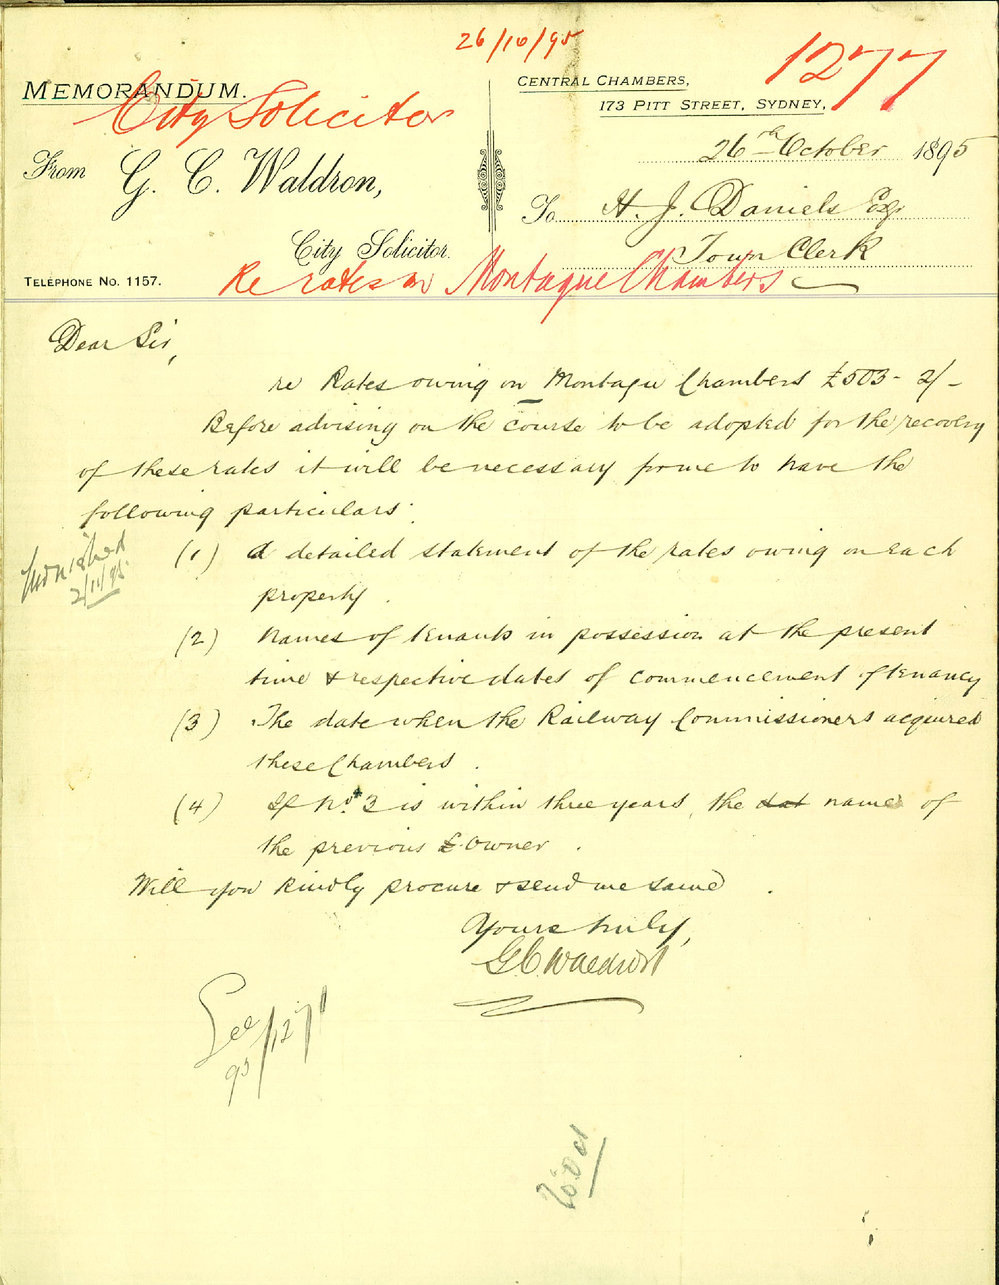 26/10/95
1277
MEMORANDUM.
City Solicitor
From G. C. Waldron,
City Solicitor.
TELEPHONE NO. 1157.
CENTRAL CHAMBERS,
173 PITT STREET, SYDNEY,
26th October 1895
To H. J. Daniels Esq
Town Clerk
Re rates on Montague Chambers
Dear Sir,
re Rates owing on Montagu Chambers £503-2/-
Before advising on the course to be adopted for the recovery
of these rates it will be necessary for me to have the
following particulars:
Furnished
2/11/95
(1) a detailed statement of the rates owing on each
property.
(2) Names of tenants in possession at the present
time & respective dates of commencement of tenancy
(3) The date when the Railway Commissioners acquired
these Chambers.
(4) If No. 3 is within three years, the dat name of
the previous Owner.
Will you kindly procure & send me same.
Yours truly,
G.C. Waldron
See
95/1271